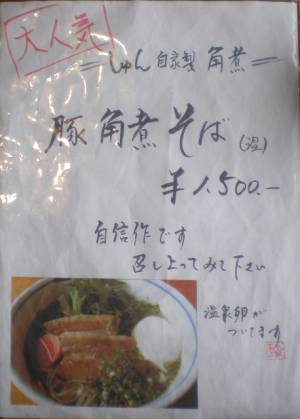 大人気
＝しゅん自家製角煮＝
豚角煮そば(温)
¥1,500.-
自信作です
召し上ってみて下さい
温泉卵が
ついてます